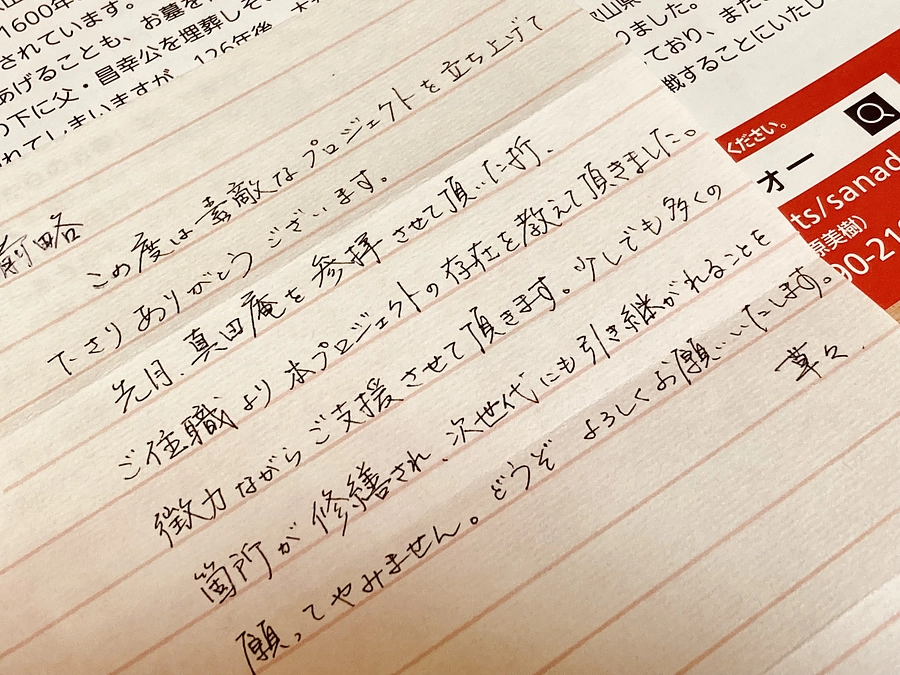 1600年
されています。
あげることも、お墓を
の下に父・昌幸公を埋葬し
れてしまいますが、126年後
前略
この度は素敵なプロジェクトを立ち上げて
下さりありがとうございます。
先月、真田庵を参拝させて頂いた折、
ご住職より本プロジェクトの存在を教えて頂きました。
微力ながらご支援させて頂きます。少しでも多くの
箇所が修繕され、次世代にも引き継がれることを
願ってやみません。どうぞよろしくお願いいたします。
草々
りました。
ており、また
戦することにいたし
ください。
オー
ts/sanad
原美樹)
90-21